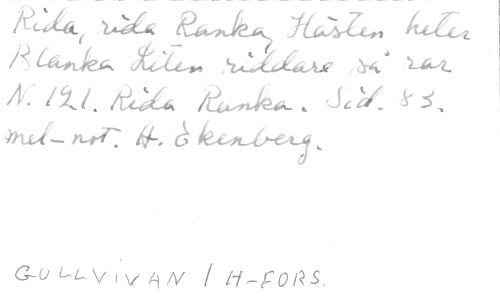 Rida, rida Ranka, Hästen heter
Blanka Liten riddare så rar
N. 121. Rida Ranka. Sid. 83.
mel-not. H. Ekenberg.
GULLVIVAN / H-FORS.